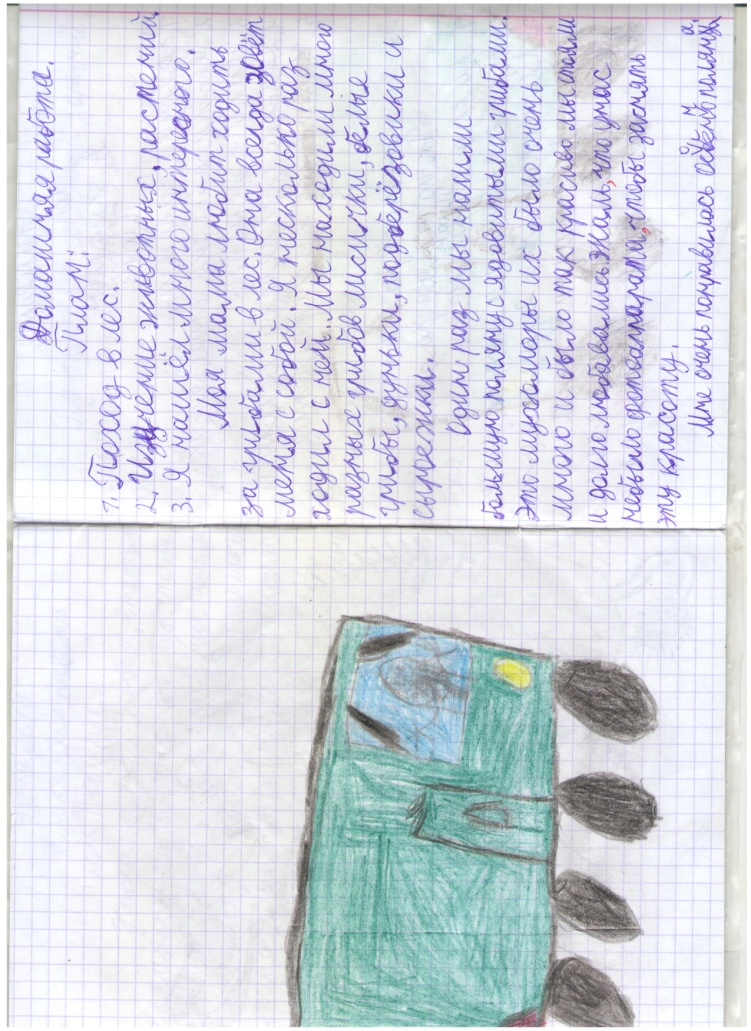 Домашняя работа.
План:
1. Поход в лес.
2. Изучение животных, растений
3. Я нашёл много интересного.
Моя мама любит ходить
за грибами в лес. Она всегда зовёт
меня с собой. Я несколько раз
ходил с ней. Мы находили много
разных грибов лисички, белые
грибы, дуньки, подберёзовики и
сыроежки.
Один раз мы нашли
большую поляну с ядовитыми грибами.
Это мухоморы их было очень
много и было так красиво мы стояли
и долго любовались жаль, что у нас
небыло фотоаппарата, чтобы заснять
эту красоту.
Мне очень понравилась поляна,